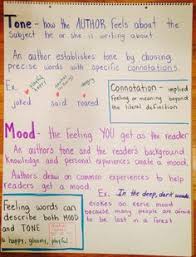 Tone - how the AUTHOR feels about the
subject he or she is writing about
An author establishes tone by choosing
precise words with specific connotations.
Ex.
joked said roared
Connotation - implied
feeling or meaning beyond
the literal definition
Mood - the feeling YOU get as the reader
An authors tone and the readers background
Knowledge and personal experiences create a mood.
Authors draw on common experiences to help
readers get a mood.
Feeling words can
describe both MOOD
and TONE
happy, gloomy, playful
Ex. In the deep, dark woods
evokes an eerie mood
because many people are afraid
to be lost in a forest